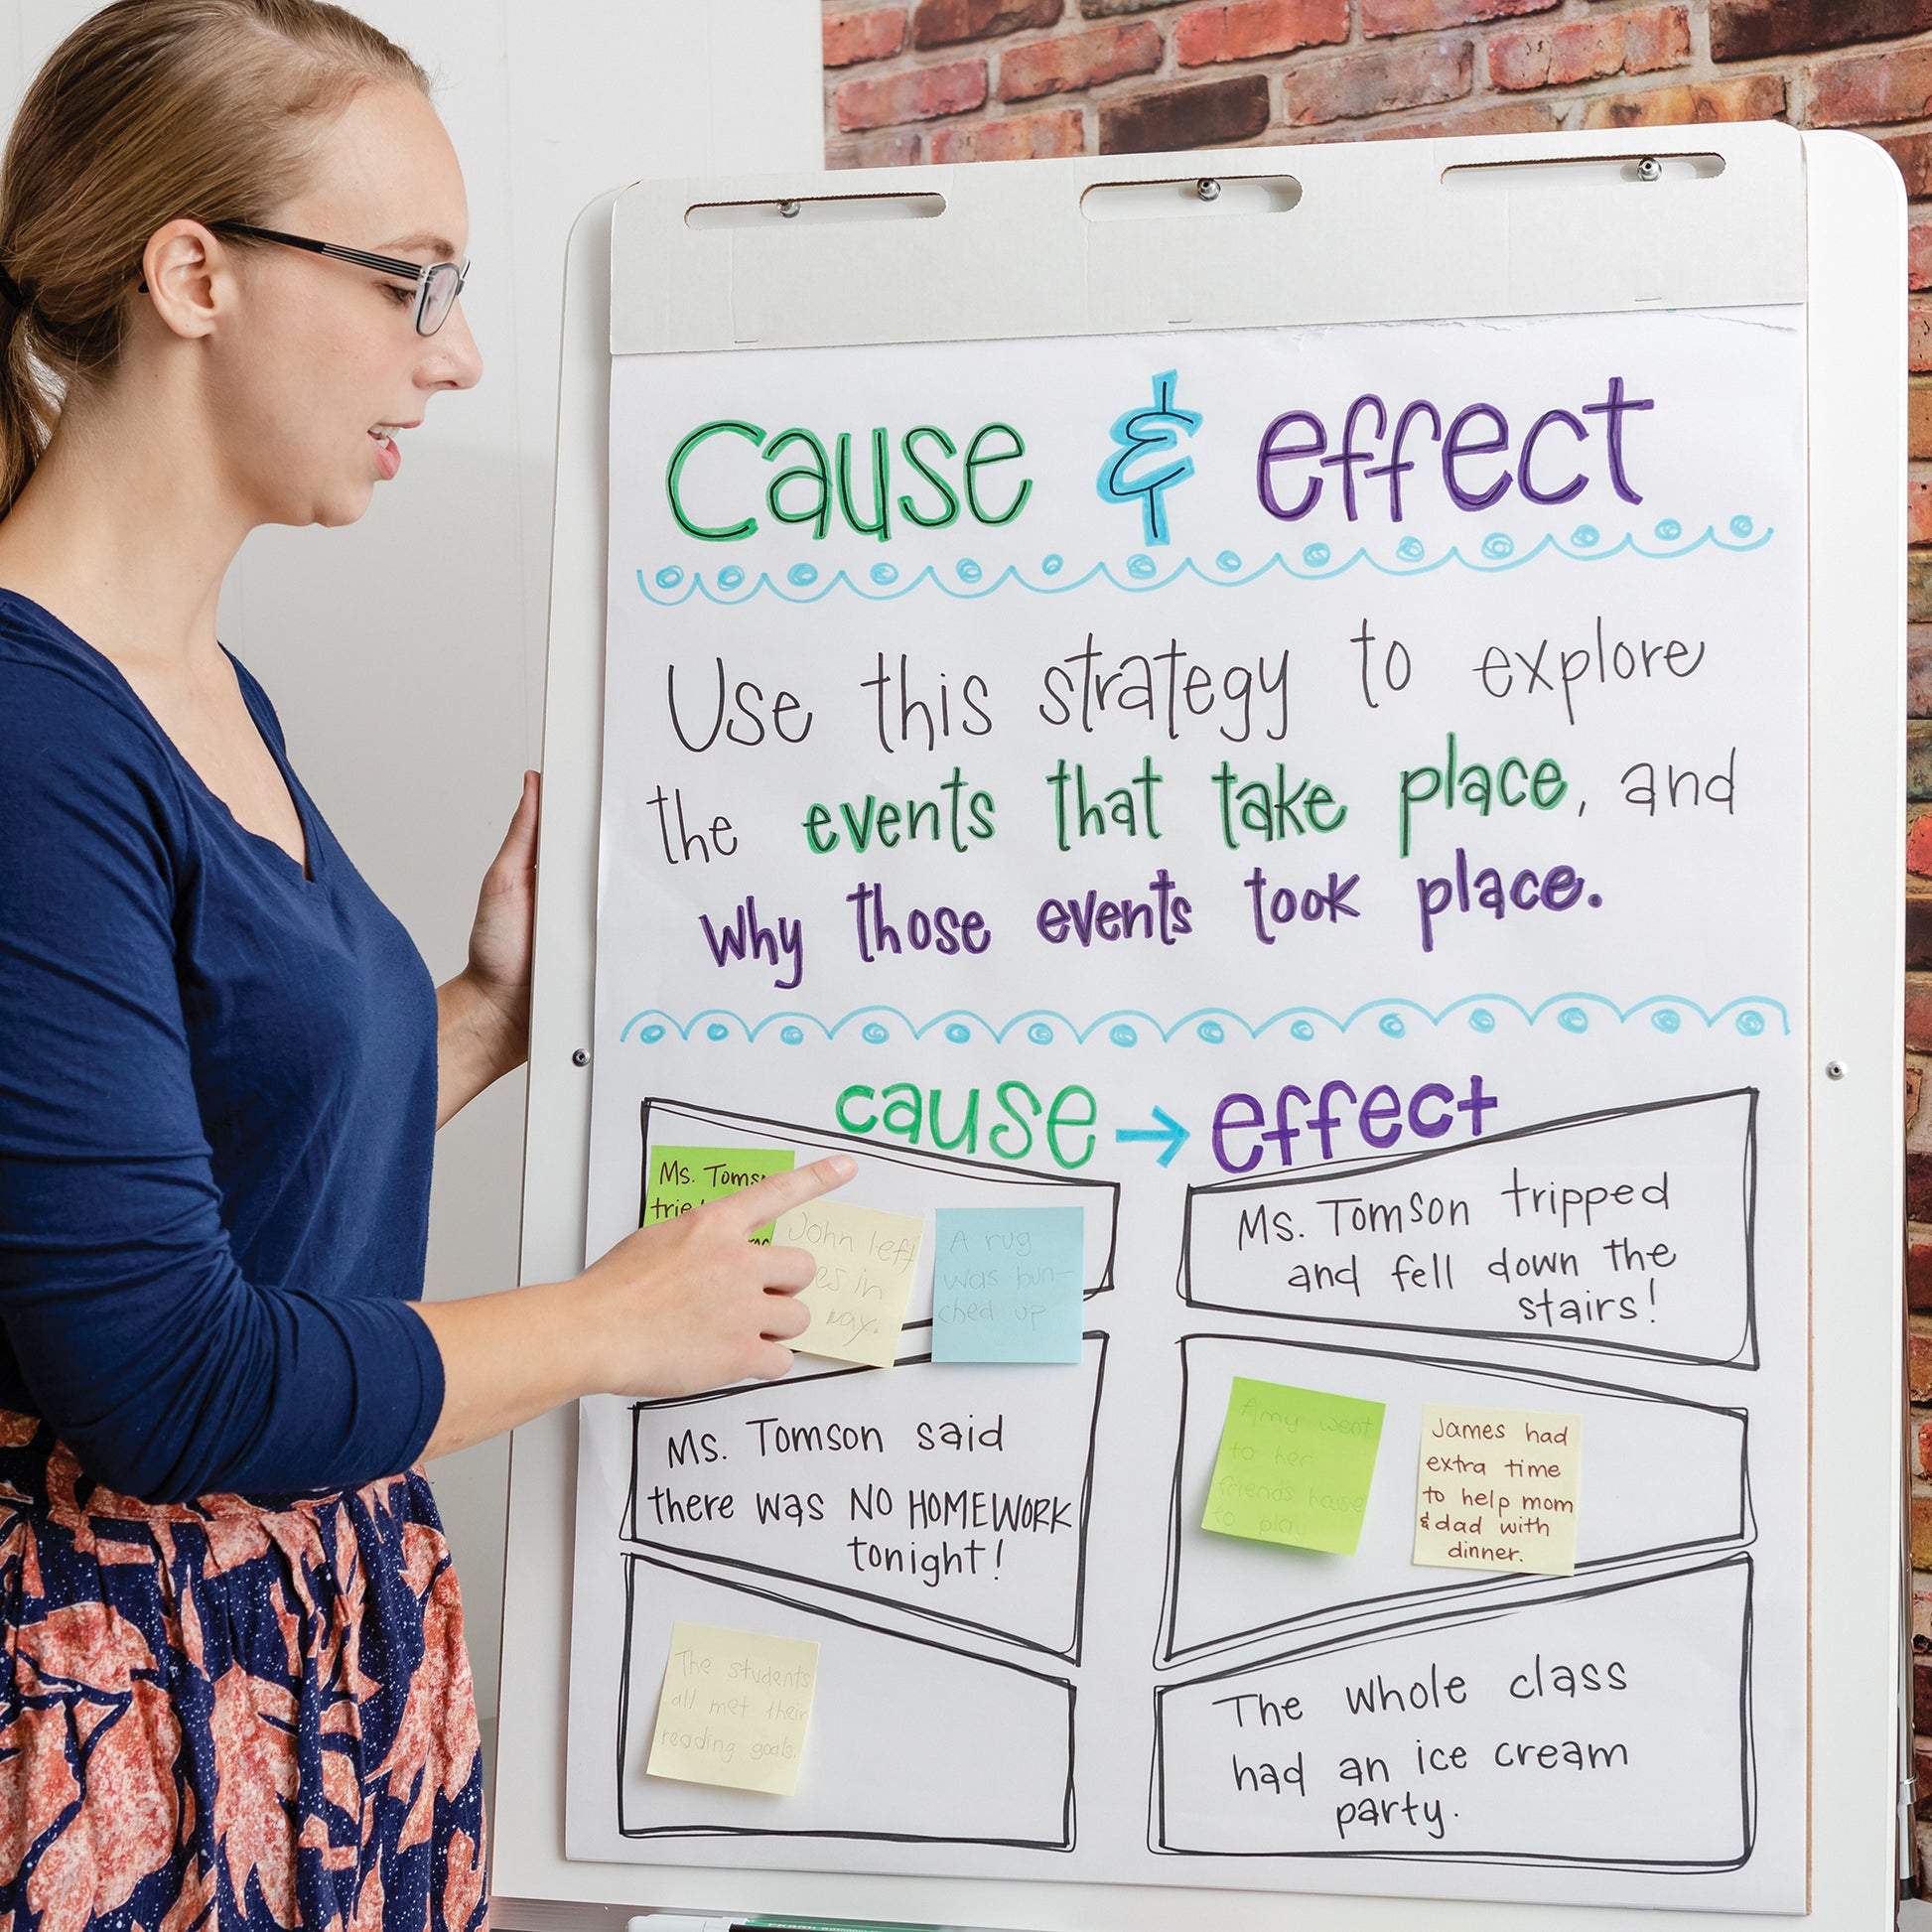 Cause & effect
Use this strategy to explore
the events that take place, and
why those events took place.
cause → effect
Ms.
John left
in
way.
A rug
was bun-
ched up
Ms. Tomson tripped
and fell down the
stairs!
Ms. Tomson said
there was NO HOMEWORK
tonight!
Amy went
to her
friends house
to play
James had
extra time
to help mom
& dad with
dinner.
The students
all met their
reading goals.
The whole class
had an ice cream
party.